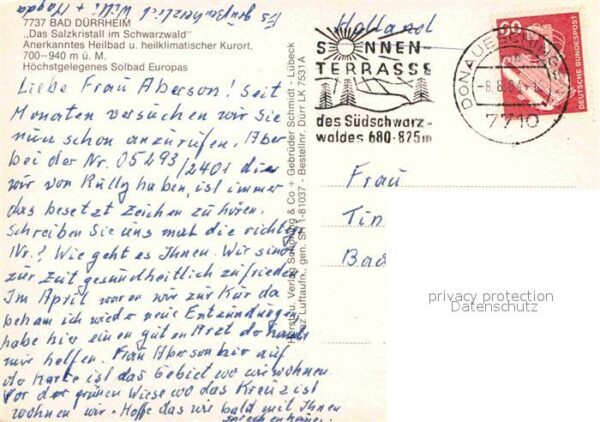 Es grüßen herzlich Willi + Magda
7737 BAD DÜRRHEIM
„Das Salzkristall im Schwarzwald"
Anerkanntes Heilbad u. heilklimatischer Kurort,
700–940 m ü. M.
Höchstgelegenes Solbad Europas
Liebe Frau Aberson! Seit
Monaten versuchen wir Sie
nun schon anzurufen. Aber
bei der Nr. 05293/2401 die
wir von Rully haben, ist immer
das besetzt Zeichen zu hören.
Schreiben Sie uns mal die richtige
Nr.? Wie geht es Ihnen. Wir sind
zur Zeit gesundheitlich zufrieden
Im April waren wir zur Kur da
bekam ich wieder neue Entzündungen
habe hier einen guten Arzt der
mir helfen. Frau Aberson hier auf
der Karte ist das Gebiet wo wir wohnen.
Vor der grünen Wiese wo das Kreuz ist
wohnen wir. Hoffe das wir bald mit Ihnen
sprechen können.
Holland
SONNEN-
TERRASSE
des Südschwarz-
waldes 680-825m
DONAUESCHINGEN
-8.8.
7710
60
DEUTSCHE BUNDESPOST
Frau
Tin
Bad
privacy protection
Datenschutz
& Co + Gebrüder Schmidt - Lübeck
Luftaufn., gen. SH 1-81037 - Bestellnr. Dürr LK 7531A